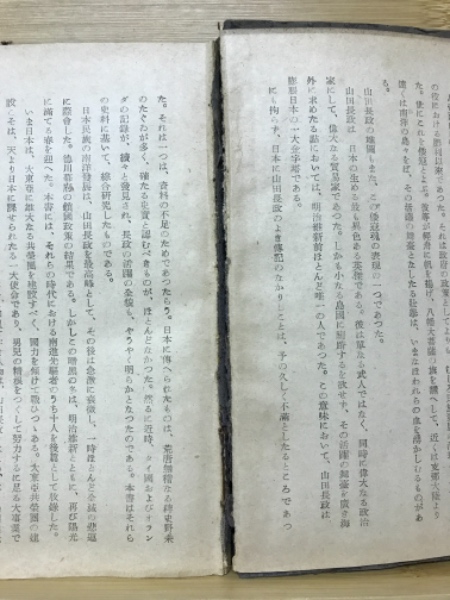 の役における勝利以来であつた。それは政府の政策としてよりも、
た。後にこれを倭寇とよぶ。彼等が軽舟に帆を揚げ、八幡大菩薩の旗を飜へして、近くは支那大陸より
遠くは南洋の島々をば、その活躍の舞臺としたる壯擧は、いまなほわれらの血を湧かしむるものがあ
る。
山田長政の雄圖もまた、この倭寇魂の表現の一つであつた。
山田長政は、日本の生める最も異色ある英傑である。彼は單なる武人ではなく、同時に偉大なる政治
家にして、偉大なる貿易家であつた。しかも小なる島國に跼蹐するを欲せず、その活躍の舞臺を廣き海
外に求めたる點においては、明治維新前ほとんど唯一の人であつた。この意味において、山田長政は
膨脹日本の一大金字塔である。
にも拘らず、日本に山田長政のよき傳記のなかりしことは、予の久しく不滿としたるところであつ
た。それは一つは、資料の不足のためであつたらう。日本に傳へられたものは、荒唐無稽なる稗史野乘
のたぐひが多く、確たる史實と認むべきものが、ほとんどなかつた。然るに近時、タイ國およびオラン
ダの記録が、續々と發見され、長政の活躍の全貌も、やうやく明らかとなつたのである。本書はそれら
の史料に基いて、綜合研究したものである。
日本民族の南洋發展は、山田長政を最高峰として、その後は急激に衰微し、一時ほとんど全滅の悲運
に際會した。徳川幕府の鎖國政策の結果である。しかしこの暗黑の冬は、明治維新とともに、再び陽光
に滿てる春を迎へた。本書には、それらの時代における南進先驅者のうち十人を後篇として收錄した。
いま日本は、大東亞に雄大なる共榮圈を建設すべく、國力を傾けて戰ひつゝある。大東亞共榮圈の建
設こそは、天より日本に課せられたる一大使命であり、男兒の精魂をつくして努力するに足る大事業で